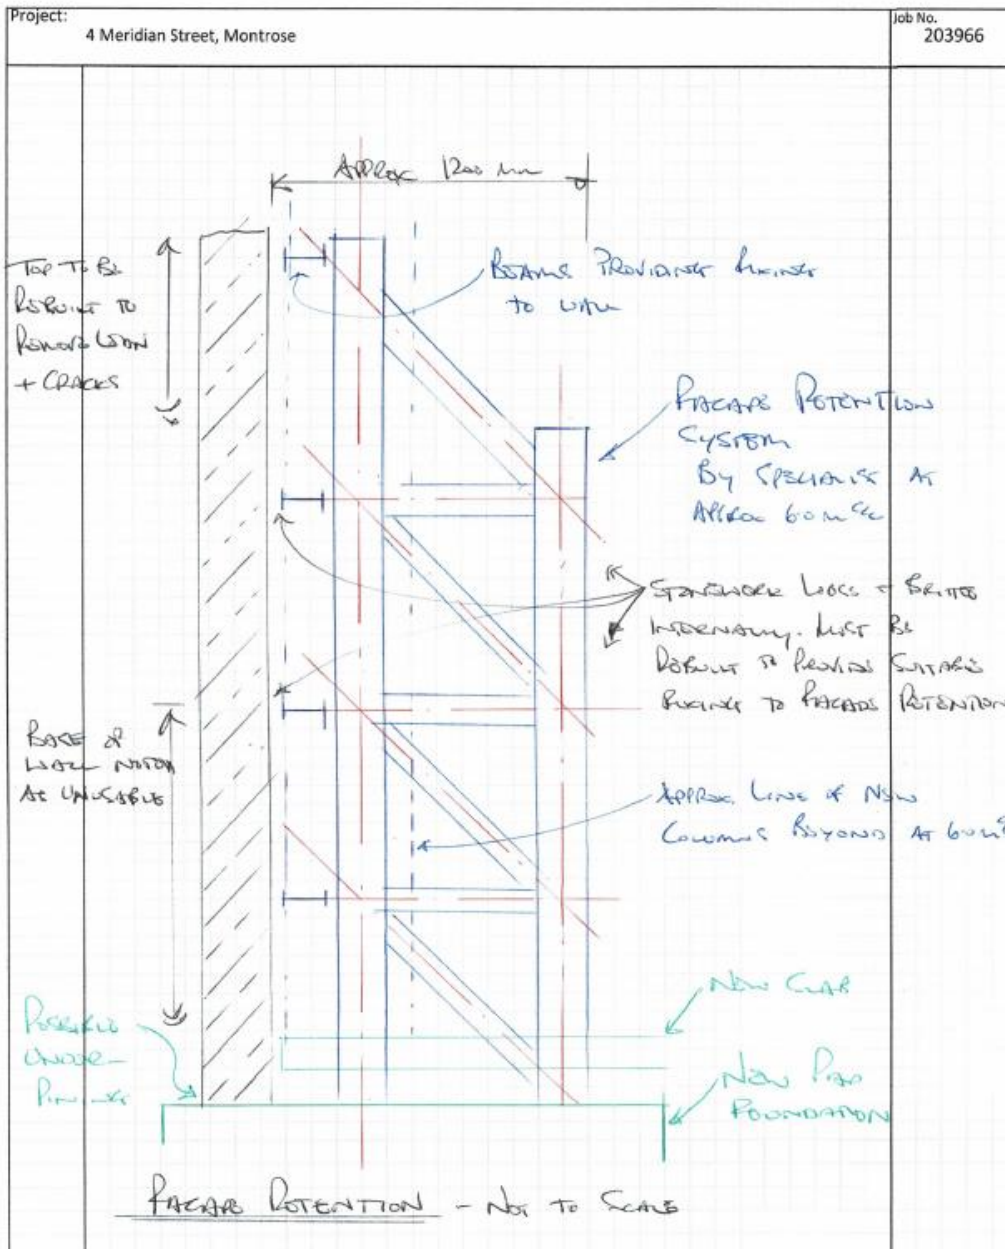 Project:
4 Meridian Street, Montrose
Job No.
203966
APPROX 1200 mm
TOP TO BE
REBUILT TO
REMOVE LEAN
+ CRACKS
BEAMS PROVIDING FIXING
TO WALL
FACADE RETENTION
SYSTEM
BY SPECIALIST AT
APPROX 6.0m c/c
STONEWORK LOOSE + BRITTLE
INTERNALLY. MUST BE
REBUILT TO PROVIDE SUITABLE
FIXING TO FACADE RETENTION
BASE OF
WALL NOTED
AS UNUSABLE
APPROX. LINE OF NEW
COLUMNS BEYOND AT 6.0m
POSSIBLE
UNDER-
PINNING
NEW SLAB
NEW PAD
FOUNDATION
FACADE RETENTION - NOT TO SCALE